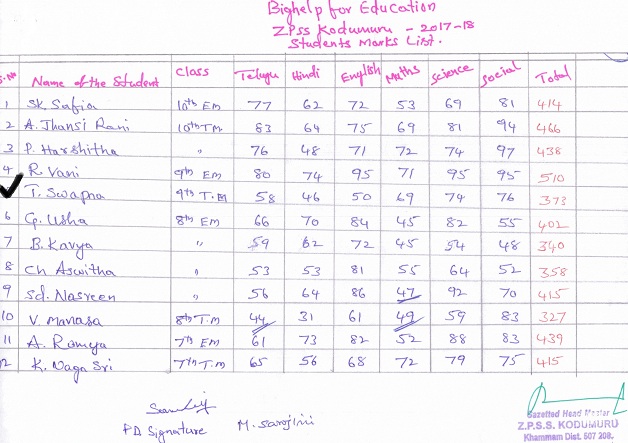 Bighelp for Education
ZPSS Kodumuru - 2017-18
Students Marks List.
S.No Name of the Student Class Telugu Hindi English Maths Science Social Total
1 Sk. Safia 10th EM 77 62 72 53 69 81 414
2 A. Jhansi Rani 10th T.M 83 64 75 69 81 94 466
3 P. Harshitha " 76 48 71 72 74 97 438
4 R. Vani 9th EM 80 74 95 71 95 95 510
T. Swapna 9th T.M 58 46 50 69 74 76 373
6 G. Usha 8th EM 66 70 84 45 82 55 402
7 B. Kavya " 59 62 72 45 54 48 340
8 Ch Aswitha " 53 53 81 55 64 52 358
9 Sd. Nasreen " 56 64 86 47 92 70 415
10 V. Manasa 8th T.M 44 31 61 49 59 83 327
11 A. Ramya 7th EM 61 73 82 52 88 83 439
12 K. Naga Sri 7th T.M 65 56 68 72 79 75 415
PD Signature M. Sarojini
Gazetted Head Master
Z.P.S.S. KODUMURU
Khammam Dist. 507 208.